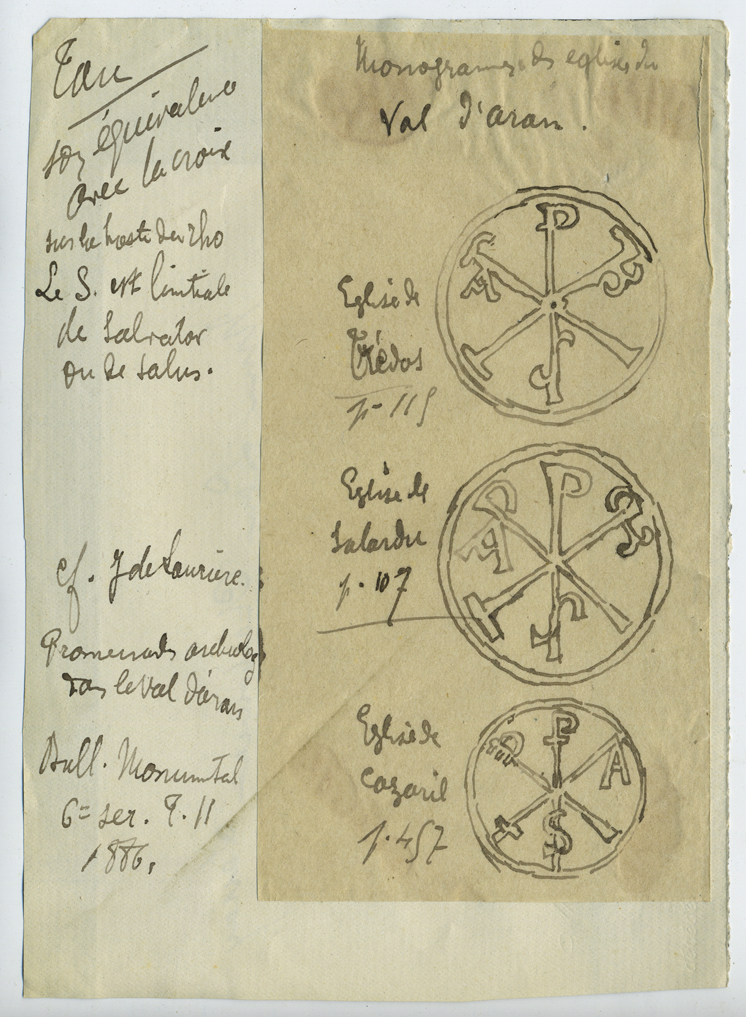 Tau
son équivalence
avec la croix
sur la haste du rho
Le S. est l'initiale
de Salvator
ou de Salus.
cf. J de Laurière.
Promenades archéolog
dans le Val d'aran
Bull. Monumental
6e ser. T. 11
1886.
Monogrammes des eglises du
Val d'aran.
Eglise de
Trédos
p. 115
P
A
Eglise de
Salardu
p. 107
P
A
Eglise de
Cazaril
p. 457
P
A
S